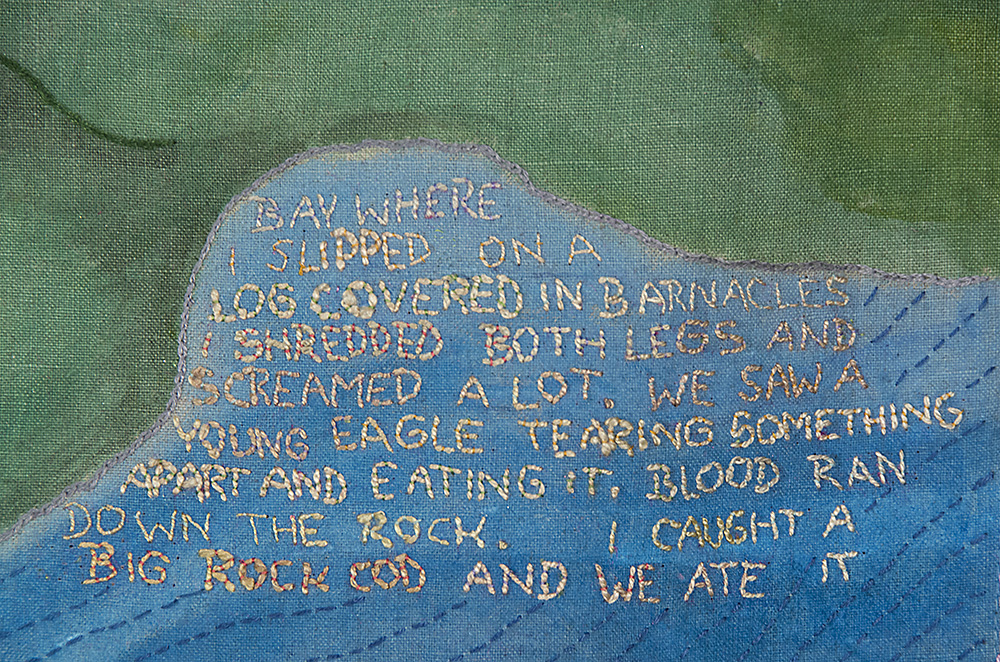 BAY WHERE
I SLIPPED ON A
LOG COVERED IN BARNACLES
I SHREDDED BOTH LEGS AND
SCREAMED A LOT. WE SAW A
YOUNG EAGLE TEARING SOMETHING
APART AND EATING IT. BLOOD RAN
DOWN THE ROCK. I CAUGHT A
BIG ROCK COD AND WE ATE IT